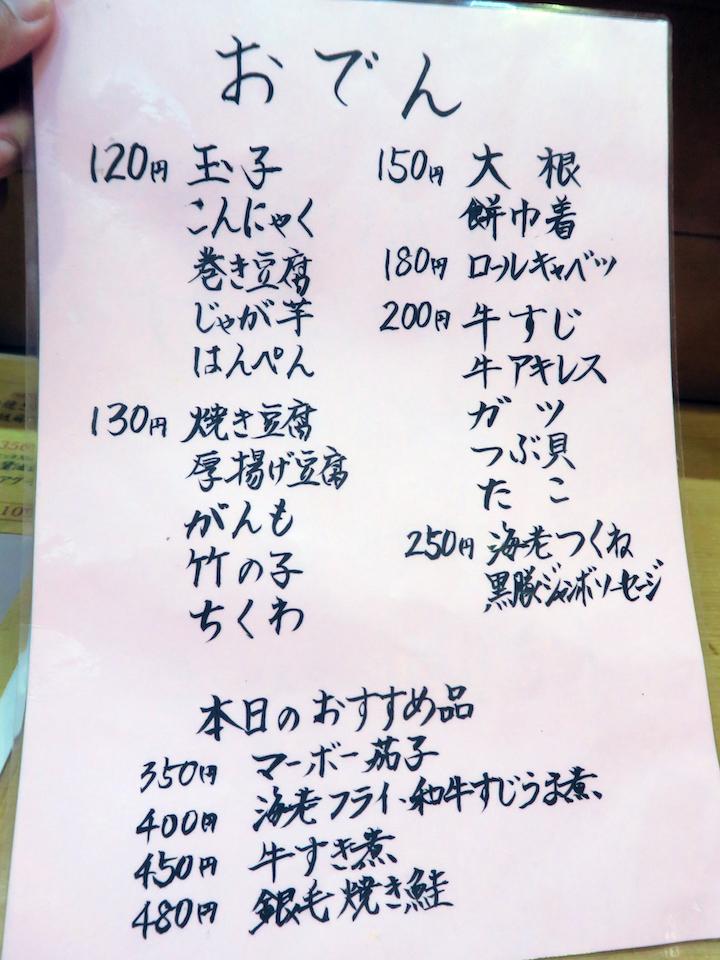 おでん
120円 玉子
こんにゃく
巻き豆腐
じゃが芋
はんぺん
130円 焼き豆腐
厚揚げ豆腐
がんも
竹の子
ちくわ
150円 大根
餅巾着
180円 ロールキャベツ
200円 牛すじ
牛アキレス
ガツ
つぶ貝
たこ
250円 海老つくね
黒豚ジャンボソーセージ
本日のおすすめ品
350円 マーボー茄子
400円 海老フライ、和牛すじうま煮、
450円 牛すき煮
480円 銀毛焼き鮭